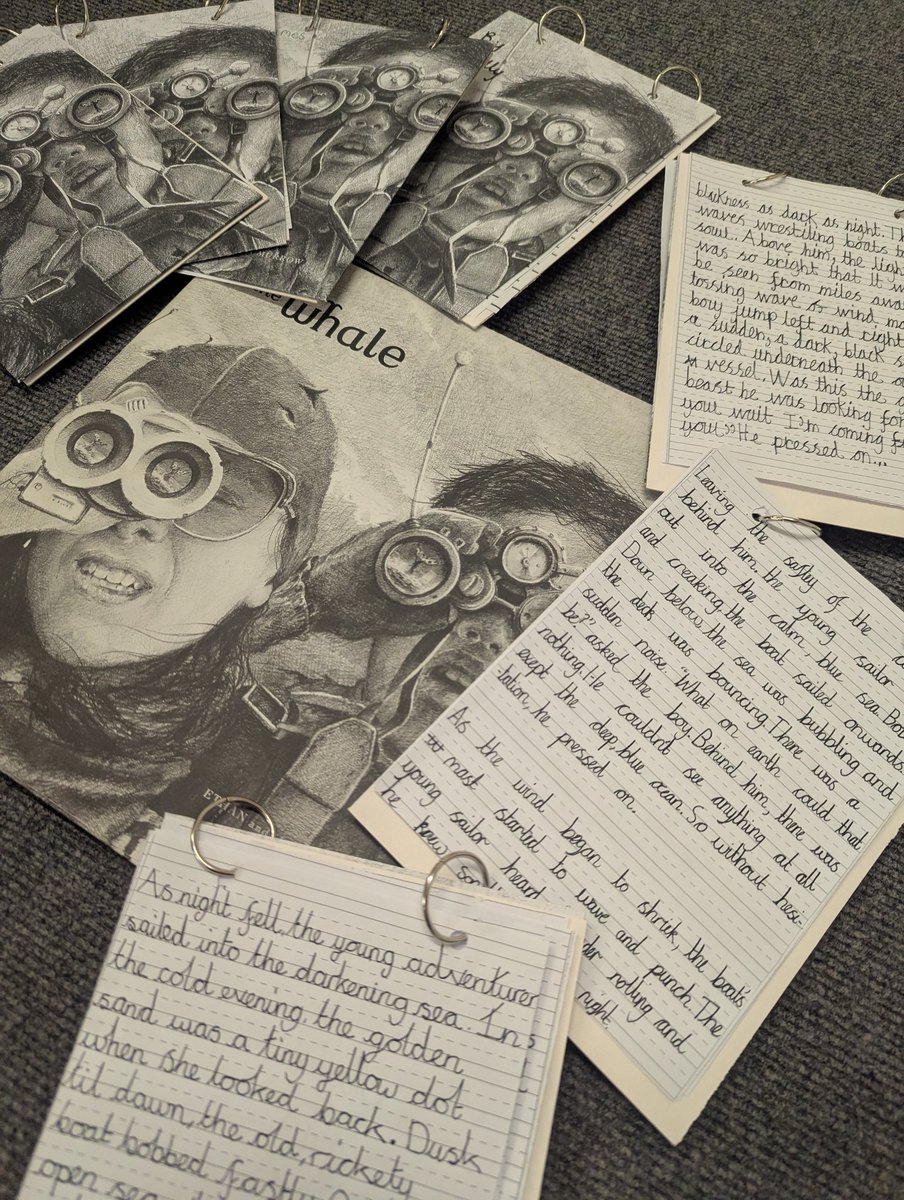 By
whale
blackness as dark as night. Th
waves wrestling boats to
soul. Above him, the ligh
was so bright that it w
be seen from miles awa
tossing wave of wind, ma
boy jump left and right
a sudden, a dark, black s
circled underneath the o
vessel. Was this the g
beast he was looking for
your wait I'm coming f
you!" He pressed on...
Leaving the safty of the
behind him, the young sailor
out into the calm, blue sea. Bob
and creaking, the boat sailed onwards
Down below, the sea was bubbling and
the deck was bouncing. There was a
sudden noise. "What on earth could that
be?" asked the boy. Behind him, there was
nothing. He couldn't see anything at all
exept the deep, blue ocean. So without hesi-
tation, he pressed on.
As the wind began to shriek, the boat's
mast started to wave and punch. The
young sailor heard der rolling and
he right
knew so
As night fell, the young adventurer
sailed into the darkening sea. In
the cold evening, the golden
sand was a tiny yellow dot
when she looked back. Dusk
til dawn, the old, rickety
boat bobbed
open sea
ETHAN